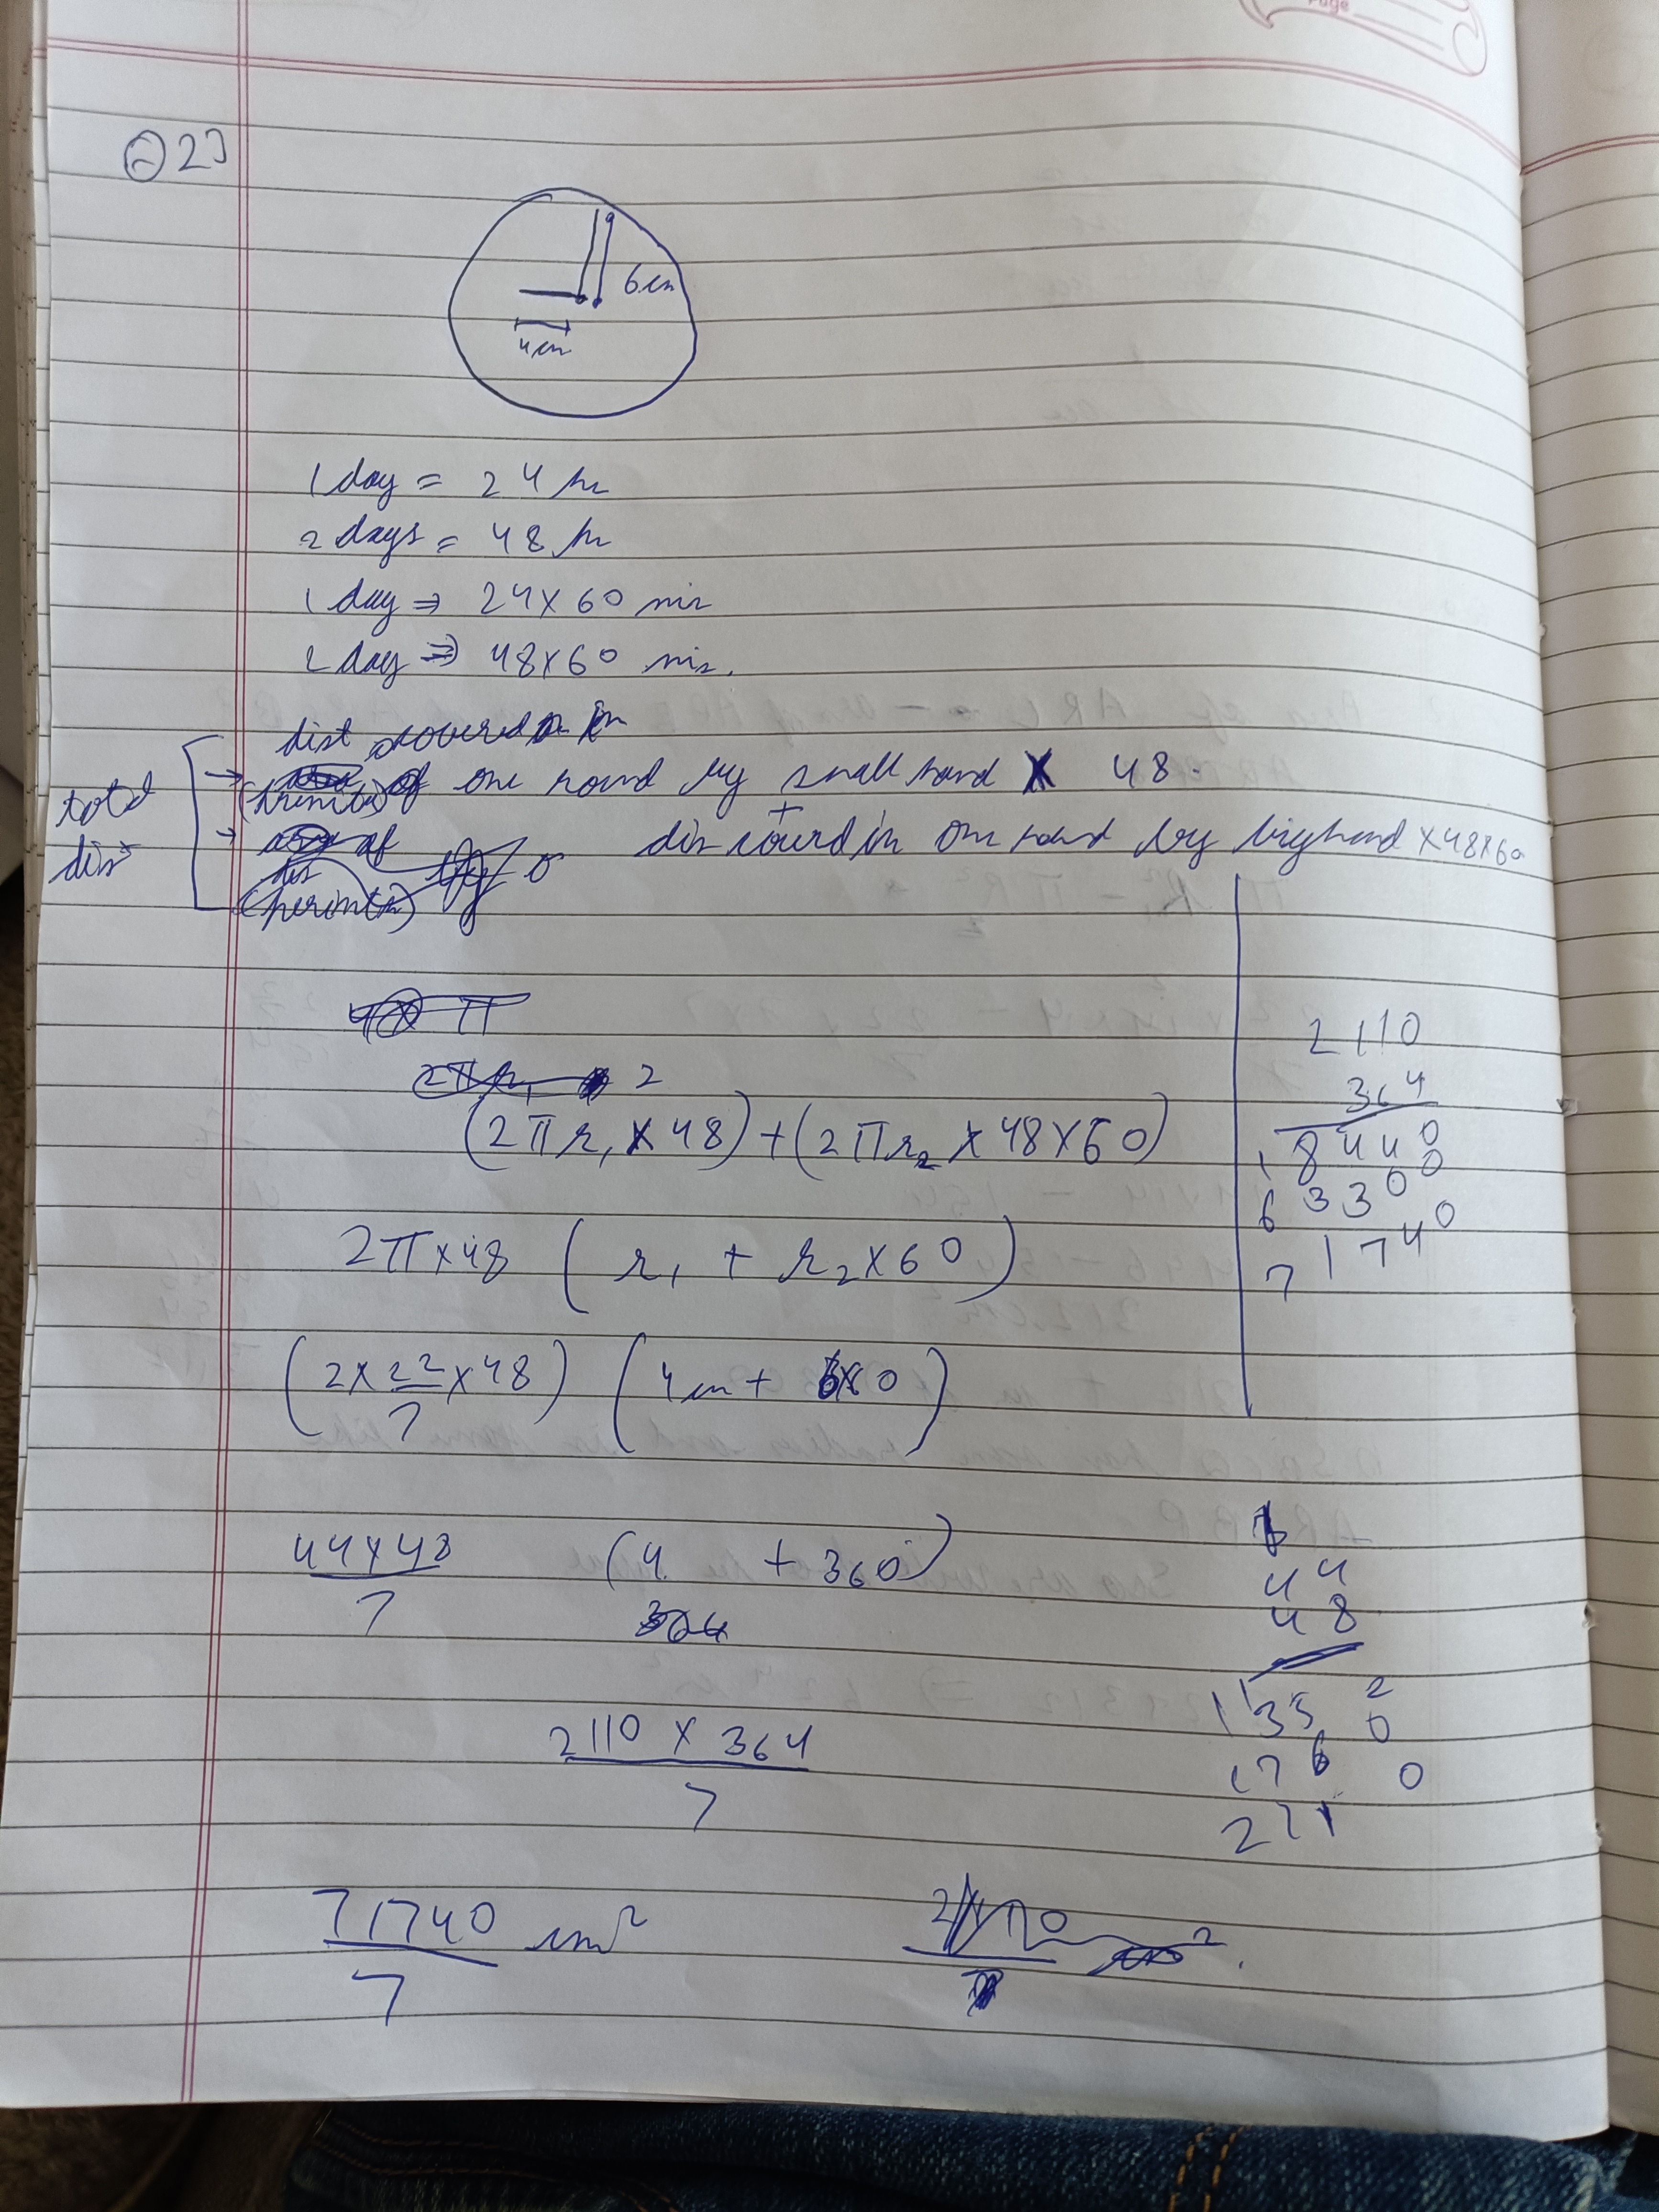 Page
Q2)
6cm
4cm
1 day = 24 hr
2 days = 48 hr
1 day ⇒ 24×60 min
2 day ⇒ 48×60 min.
dist covered in
total dis → of one round by small hand × 48.
+
→ dis courd in One round by big hand ×48×60
(perimtr)
4× π
2πr₁ 2
(2πr₁×48)+(2πr₂×48×60)
2π×48 ( r₁ + r₂×60)
(2×22/7×48) (4cm+ 6×60)
44×48/7 (4 + 360)
364
2110 × 364/7
71740/7 cm²
2110
364
18440
63300
71740
44
48
1352
1760
211